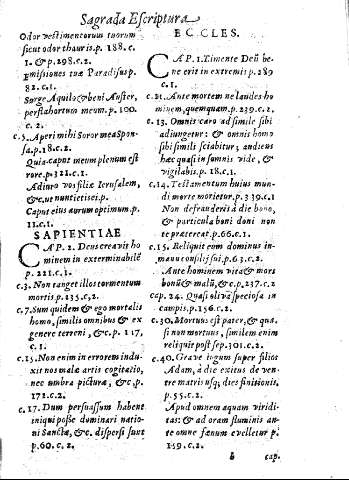 Sagrada Escriptura
Odor vestimentorum tuorum
sicut odor thauris. p. 188. c.
1. & p. 298. c. 2.
Emissiones tuæ Paradisus p.
82. c. 1.
Surge Aquilo & beni Auster,
perfla hortum meum p. 100.
c. 2.
c. 5. Aperi mihi Soror mea Spon-
sa. p. 18. c. 2.
Quia caput meum plenum est
rore. p. 321. c. 1.
Adiuro vos filiæ Ierusalem,
& c. ut nuntietis ei. p.
Caput eius aurum optimum. p.
11. c. 1.
SAPIENTIAE
CAP. 2. Deus creavit ho
minem in exterminabilẽ
p. 221. c. 1.
c. 3. Non tanget illos tormentum
mortis p. 135. c. 2.
c. 7. Sum quidem & ego mortalis
homo, similis omnibus & ex
genere terreni, & c. p. 117,
c. 1.
c. 15. Non enim in errorem indu-
xit nos malæ artis cogitatio,
nec umbra picturæ, & c. p.
171. c. 2.
c. 17. Dum persuassum habent
iniqui posse dominari natio-
ni Sanctæ, & c. dispersi sunt
p. 60. c. 2.
ECCLES.
CAP. 1. Timente Deũ be-
ne erit in extremis p. 289
c. 1.
c. 11. Ante mortem ne landes ho
minem, quemquam. p. 239. c. 2.
c. 13. Omnis caro ad simile sibi
adiungetur: & omnis homo
sibi simili sciabitur; audiens
hæc quasi in somnis vide, &
vigilabis. p. 18. c. 1.
c. 14. Testamentum huius mun-
di morte morietur. p. 339. c. 1
Non defranderis à die bono,
& particula boni doni non
te prætereat. p. 66. c. 1.
c. 15. Reliquit eum dominus in-
manu consilij sui. p. 63. c. 2.
Ante hominem vita & mors
bonũ & malũ, & c. p. 237. c. 2
cap. 24. Quasi oliva speciosa in
campis. p. 156. c. 2.
c. 30. Mortuus est pater, & qua-
si non mortuus, similem enim
reliquit post sep. 301. c. 2.
c. 40. Grave iugum super filios
Adam, à die exitus de ven-
tre matris usq; dies finitionis.
p. 55. c. 2.
Apud omnem aquam viridi-
tas: & ad oram fluminis an-
te omne fænum evelletur p.
159. c. 2.
b cap.